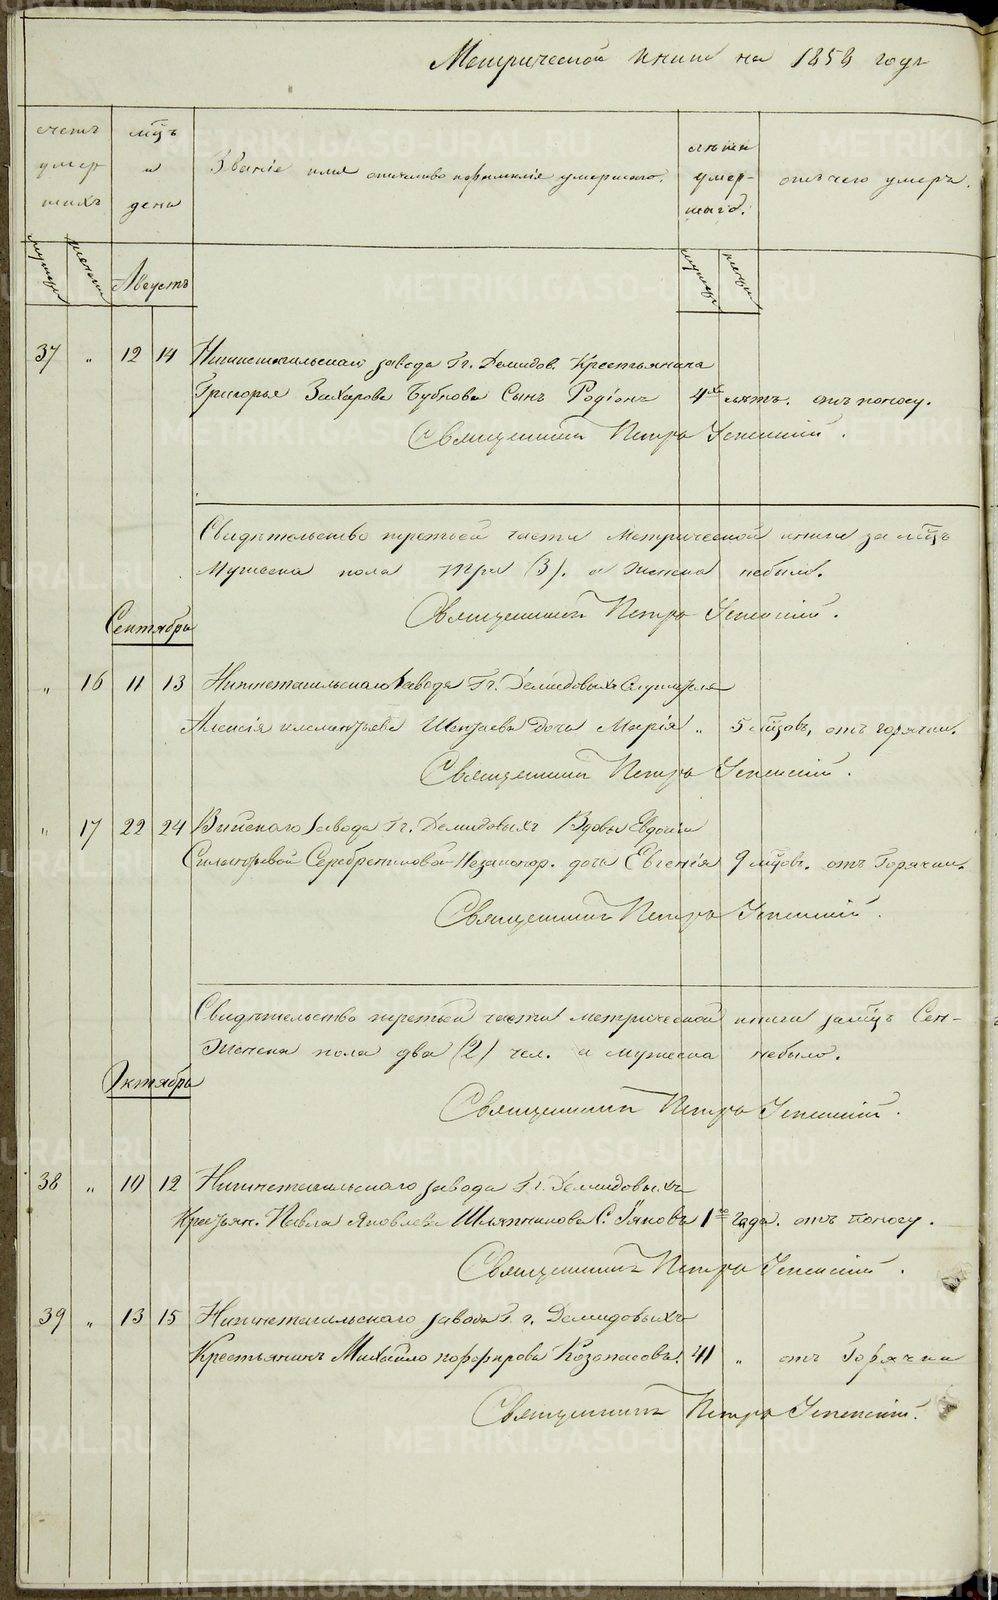 Метрической книги на 1858 годъ
счетъ умершихъ
мцъ и день
Званіе имя отчество и фамилія умершаго.
лѣта умер-шаго.
отъ чего умеръ.
мужеск
женск
Августъ
мужеск
женск
37 " 12 14 Нижнетагильскаго завода Гг. Демидов. Крестьянина
Григорья Захарова Бубнова Сынъ Родіонъ 4хъ лѣтъ. отъ поносу.
Священникъ Петръ Успенскій.
Свидѣтельство третьей части Метрической книги за мцъ
Мужеска пола три (3). а Женска небыло.
Священникъ Петръ Успенскій.
Сентябрь
" 16 11 13 Нижнетагильскаго завода Гг. Демидовыхъ Служителя
Алексія Шептаева Дочь Марія " 5 мцовъ, отъ горячки.
Священникъ Петръ Успенскій.
" 17 22 24 Выйскаго завода Гг. Демидовыхъ Вдовы Евдокіи
Серебрениковой Незаконор. дочь Евгенія 9 мцовъ. отъ Горячки.
Священникъ Петръ Успенскій.
Свидѣтельство третьей части метрической книги за мцъ Сен-
Женска пола два (2) чел. а мужеска небыло.
Октябрь
Священникъ Петръ Успенскій.
38 " 10 12 Нижнетагильскаго завода Гг. Демидовыхъ
Крестьян. Павла Яковлева С. Іяковъ 1го года. отъ поносу.
Священникъ Петръ Успенскій.
39 " 13 15 Нижнетагильскаго завода Г. г. Демидовыхъ
Крестьянинъ Михайло порфирова Козопасовъ. 41 " отъ Горячки
Священникъ Петръ Успенскій.
METRIKI.GASO-URAL.RU